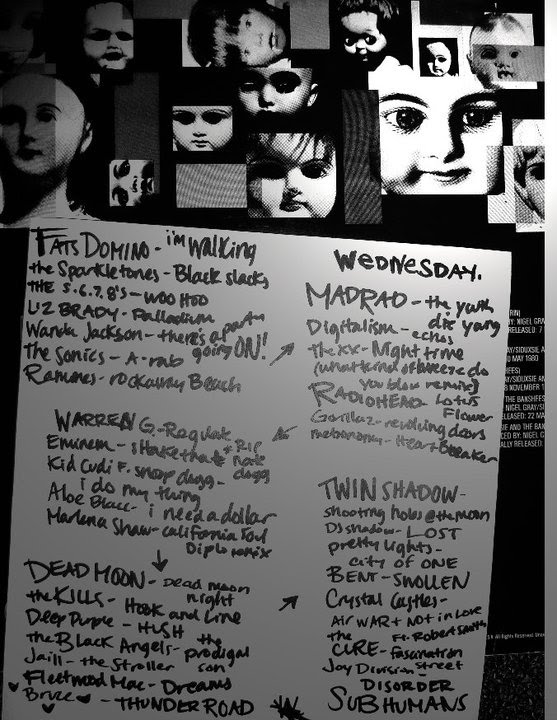 FATS DOMINO - i'm walking
the Sparkletones - Black slacks
THE 5.6.7.8's - WOO HOO
LIZ BRADY - Palladium
Wanda Jackson - there's a party going ON!
The Sonics - A-rab
Ramones - rockaway Beach
WARREN G. - Regulate
Eminem - shake that ft. Nate dogg
Kid Cudi F. snoop dogg - i do my thing
Aloe Blacc - i need a dollar
Marlena Shaw - california Soul
Diplo remix
DEAD MOON - Dead moon night
the KILLS - Hook and Line
Deep Purple - HUSH
The Black Angels - the prodigal son
Jaill - the Stroller
Fleetwood Mac - Dreams
Bruce - THUNDER ROAD
WEDNESDAY.
MADRAD - the yuth die yong
Digitalism - echos
The XX - Night time
(what kind of breeze do you blow remix)
RADIOHEAD - Lotus Flower
Gorillaz - revolving doors
metronomy - Heart Breaker
TWIN SHADOW -
shooting holes @ the moon
DJ shadow - LOST
pretty lights -
city of ONE
BENT - SWOLLEN
Crystal Castles -
Air WAR + Not in Love
Ft. Robert Smith
the CURE - fascination street
Joy Division -
DISORDER
SUBHUMANS
BY: NIGEL GRA
RELEASED: 7
AY/SIOUXSIE AN
0 MAY 1980
AY/SIOUXSIE AND
8 NOVEMBER 1
THE BANSHEES
NIGEL GRAY/SI
ELEASED: 22 MA
SIE AND THE BAN
CED BY: NIGEL G
ALLY RELEASED:
All Rights Reserved.